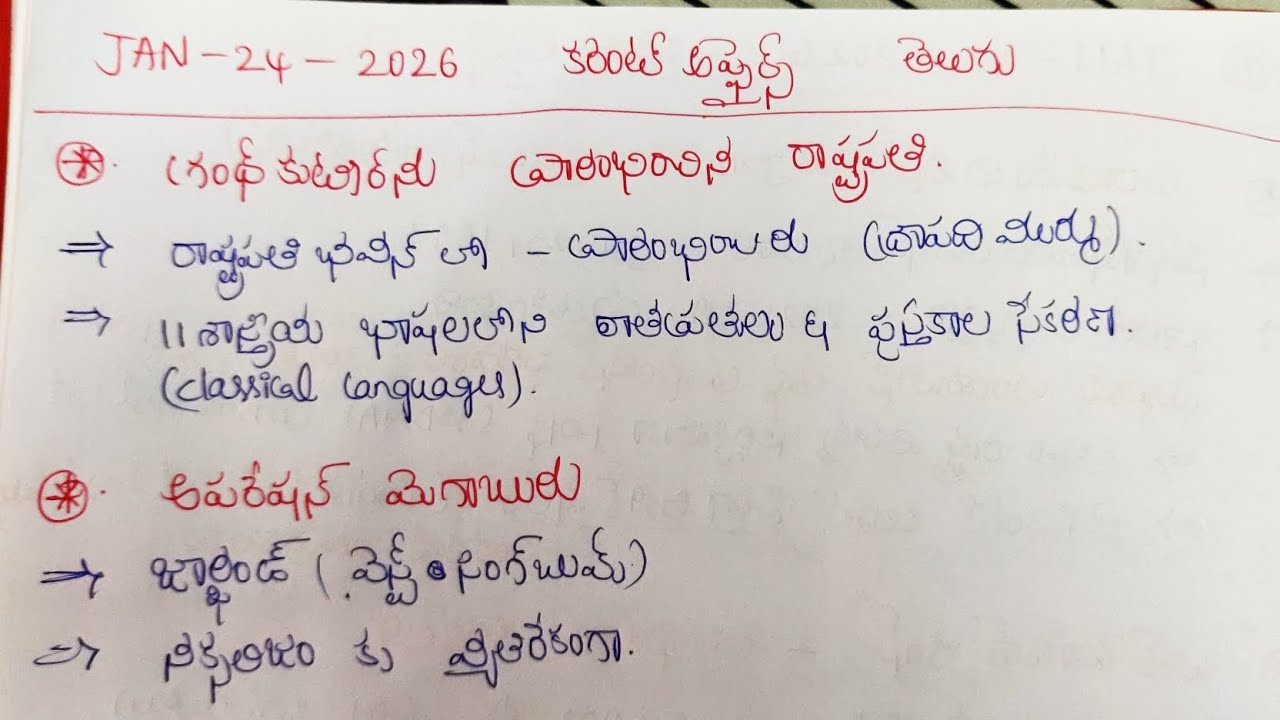 JAN-24-2026 కరెంట్ అఫైర్స్ తెలుగు
గ్రంథ్ కుటీర్‌ను ప్రారంభించిన రాష్ట్రపతి.
⇒ రాష్ట్రపతి భవన్ లో - ప్రారంభించారు (ద్రౌపది ముర్ము).
⇒ 11 శాస్త్రీయ భాషలలోని రాతప్రతులు & పుస్తకాల సేకరణ.
(classical languages).
ఆపరేషన్ మెగాబురు
⇒ జార్ఖండ్ (వెస్ట్ సింగ్‌భుమ్)
⇒ నక్సలిజం కు వ్యతిరేకంగా.